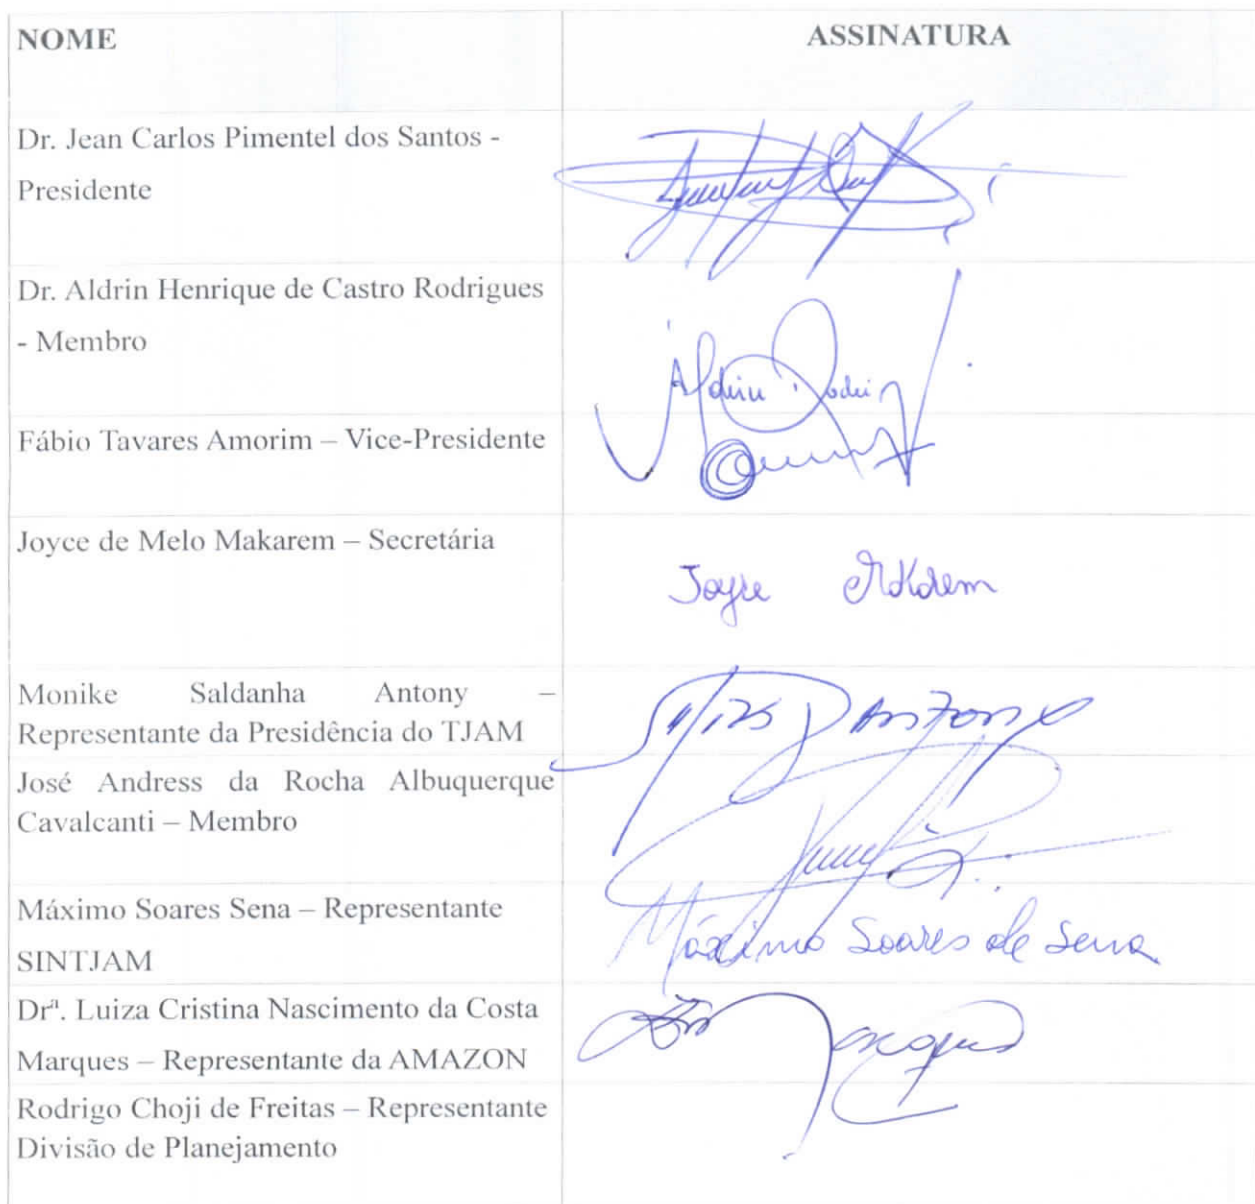 NOME
ASSINATURA
Dr. Jean Carlos Pimentel dos Santos -
Presidente
Dr. Aldrin Henrique de Castro Rodrigues
- Membro
Aldrin Rodri
Fábio Tavares Amorim – Vice-Presidente
Joyce de Melo Makarem – Secretária
Joyce
Monike Saldanha Antony –
Representante da Presidência do TJAM
Antony
José Andress da Rocha Albuquerque
Cavalcanti – Membro
Máximo Soares Sena – Representante
SINTJAM
Máximo Soares de Sena
Drª. Luiza Cristina Nascimento da Costa
Marques – Representante da AMAZON
Rodrigo Choji de Freitas – Representante
Divisão de Planejamento